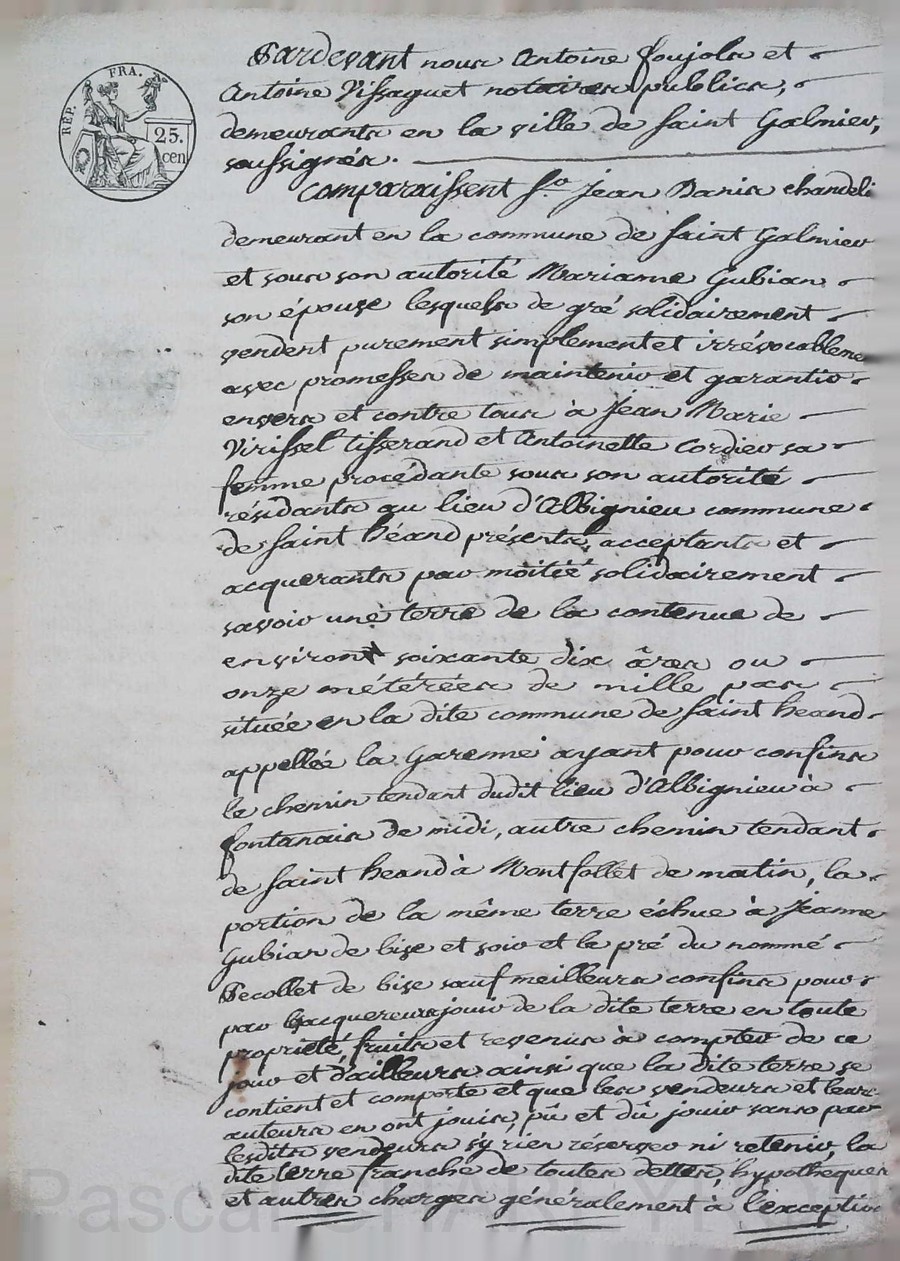 REP. FRA.
25.
cen
Pardevant nous Antoine Poujols et
Antoine Vissaguet notaires publics,
demeurants en la ville de Saint Galmier,
soussignés.
Comparaissent Sr. Jean Danis chandeli
demeurant en la commune de Saint Galmier
et sous son autorité Marianne Gubian
son épouse lesquels de gré solidairement
vendent purement simplement et irrévocableme
avec promesses de maintenir et garantir
envers et contre tous à Jean Marie
Virissel tisserand et Antoinette Cordier sa
femme procédante sous son autorité
résidants au lieu d'Albignieu commune
de Saint héand présents, acceptants et
acquerants par moitié solidairement
savoir une terre de la contenue de
environ soixante dix âres ou
onze métérées de mille pas
située en la dite commune de Saint heand
appellée la Garenne ayant pour confins
le chemin tendant dudit lieu d'Albignieu à
fontanais de midi, autre chemin tendant
de Saint heand à Montfollet de matin, la
portion de la même terre échue à Jeanne
Gubian de bise et soir et le pré du nommé
Pecollet de bise sauf meilleurs confins pour
par les acquereurs jouir de la dite terre en toute
propriété, fruits et revenus à compter de ce
jour et d'ailleurs ainsi que la dite terre se
contient et comporte et que les vendeurs et leurs
auteurs en ont jouis, pû et dû jouir sans par
lesdits vendeurs s'y rien réserver ni retenir, la
dite terre franche de toutes dettes, hypotheques
et autres charges généralement à l'exceptio